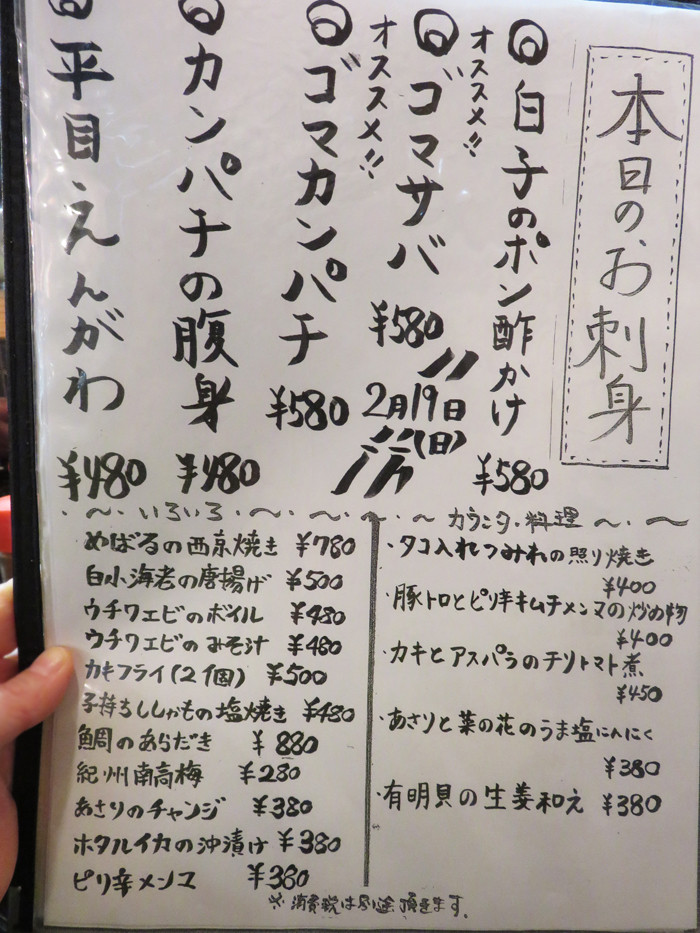 本日のお刺身
白子のポン酢かけ
¥580
オススメ!!
ゴマサバ
¥580
オススメ!!
2月19日
(日)
ゴマカンパチ
¥580
カンパチの腹身
¥480
平目えんがわ
¥480
いろいろ
めばるの西京焼き ¥780
白小海老の唐揚げ ¥500
ウチワエビのボイル ¥480
ウチワエビのみそ汁 ¥480
カキフライ(2個) ¥500
子持ちししゃもの塩焼き ¥480
鯛のあらだき ¥880
紀州南高梅 ¥280
あさりのチャンジ ¥380
ホタルイカの沖漬け ¥380
ピリ辛メンマ ¥380
カウンター料理
・タコ入れつみれの照り焼き
¥400
・豚トロとピリ辛キムチメンマの炒め物
¥400
・カキとアスパラのチリトマト煮
¥450
・あさりと菜の花のうま塩にんにく
¥380
・有明貝の生姜和え ¥380
※消費税は別途頂きます。